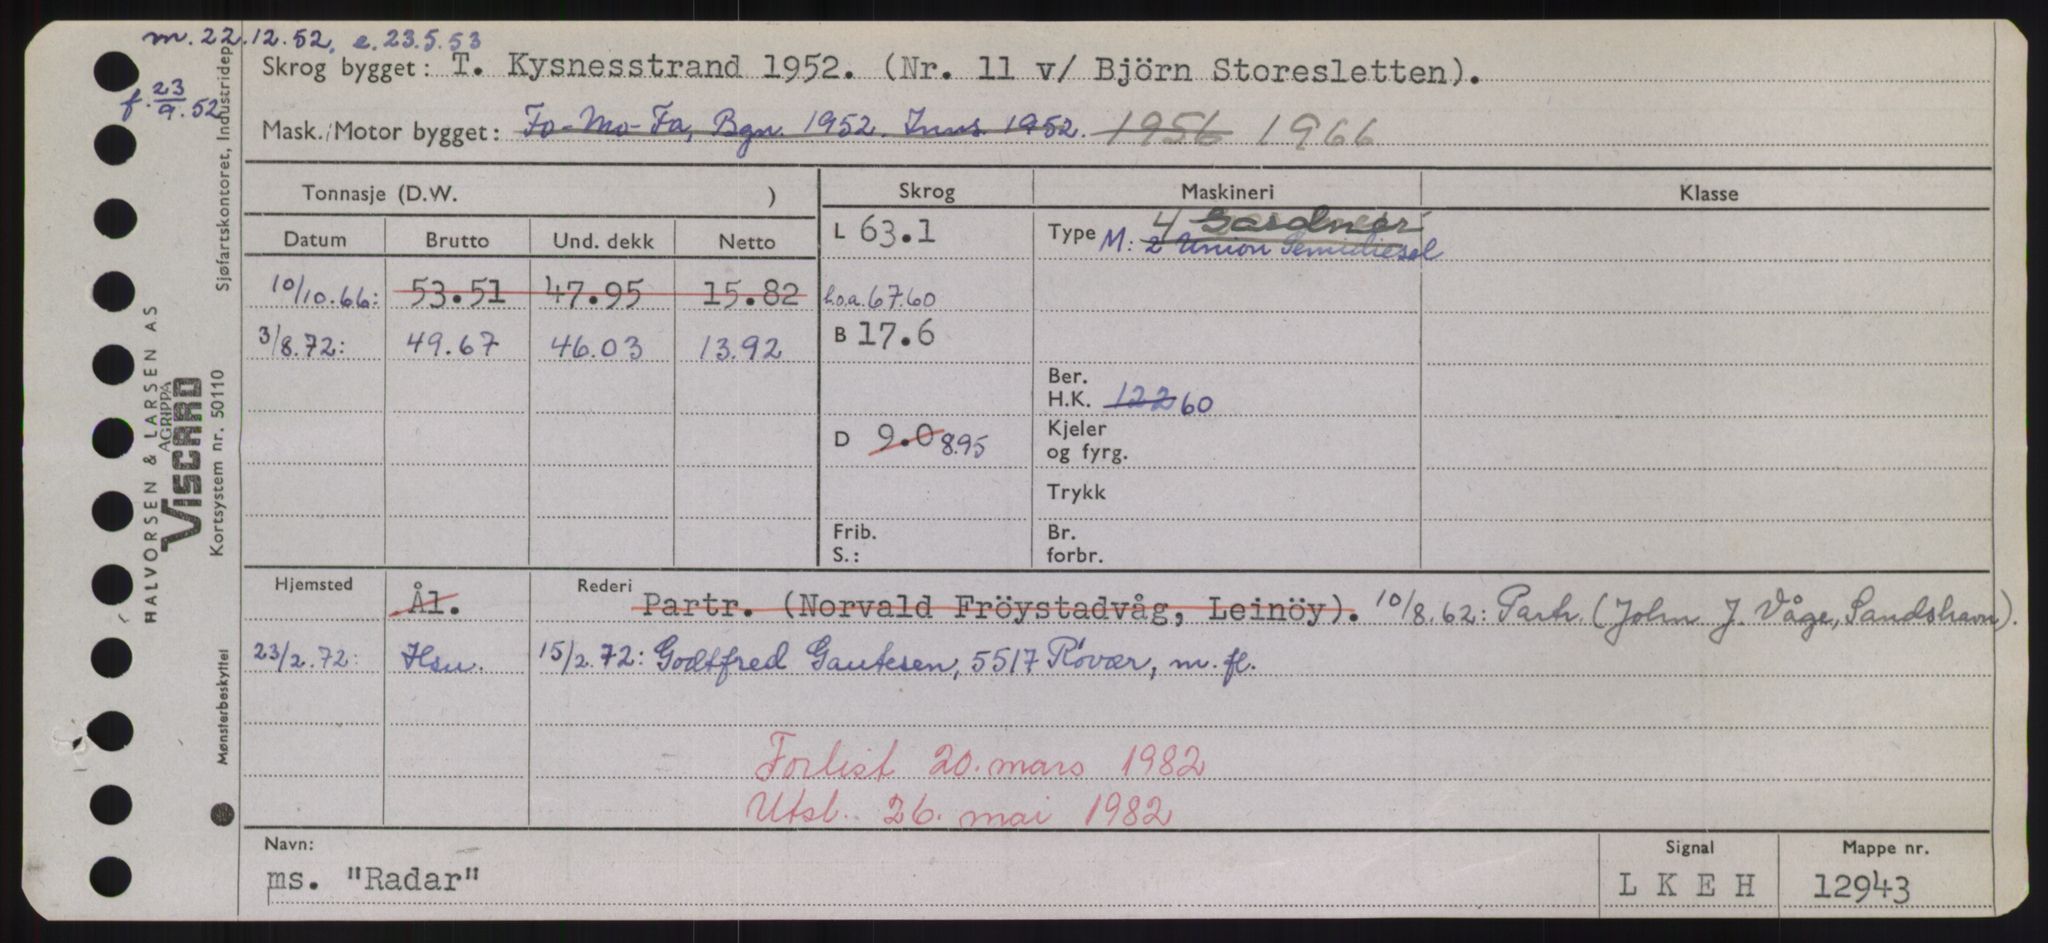 m. 22.12.52, e. 23.5.53
Skrog bygget: T. Kysnesstrand 1952. (Nr. 11 v/ Björn Storesletten).
f. 23/9.52
Mask./Motor bygget: Fo-Mo-Fa, Bgn. 1952. Inns. 1952. 1956 1966
Tonnasje (D.W. )
Skrog Maskineri Klasse
Datum Brutto Und. dekk Netto
L 63.1
Type 4 Gardner
M: 2 Union Semidiesel
10/10.66: 53.51 47.95 15.82
l.o.a. 67.60
3/8.72: 49.67 46.03 13.92
B 17.6
Ber.
H.K. 122 60
D 9.0 8.95
Kjeler
og fyrg.
Trykk
Frib.
S.:
Br.
forbr.
Hjemsted Ål. Rederi Partr. (Norvald Fröystadvåg, Leinöy). 10/8.62: Partr. (John J. Våge, Sandshavn).
23/2.72: Hsu. 15/2.72: Godtfred Gautesen, 5517 Røvær, m. fl.
Forlist 20. mars 1982
Utsl. 26. mai 1982
Navn: Signal Mappe nr.
ms. "Radar" L K E H 12943
HALVORSEN & LARSEN AS
AGRIPPA
VISCARD
Sjøfartskontoret, Industridep
Kortsystem nr. 50110
Mønsterbeskyttet